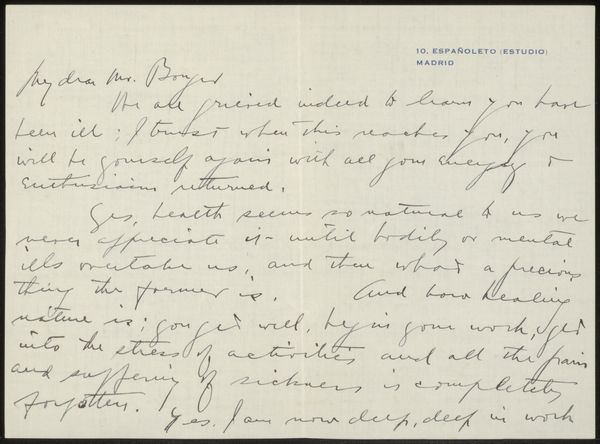 10, ESPAÑOLETO (ESTUDIO)
MADRID
My dear Mr. Bonger
We are grieved indeed to learn you have
been ill; I trust when this reaches you, you
will be yourself again with all your energy &
enthusiasm returned.
Yes, health seems so natural to us we
never appreciate it until bodily or mental
ills overtake us, and then what a precious
thing the former is. And how healing
nature is; you get well, begin your work, get
into the stress of activities and all the pain
and suffering of sickness is completely
forgotten. Yes. I am now deep, deep in work